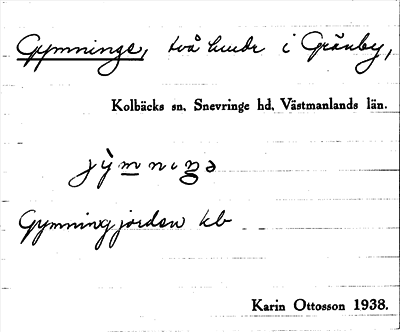 Gymninge, två hundr i Gränby,
Kolbäcks sn. Snevringe hd. Västmanlands län.
Gymningjorden kb
Karin Ottosson 1938.